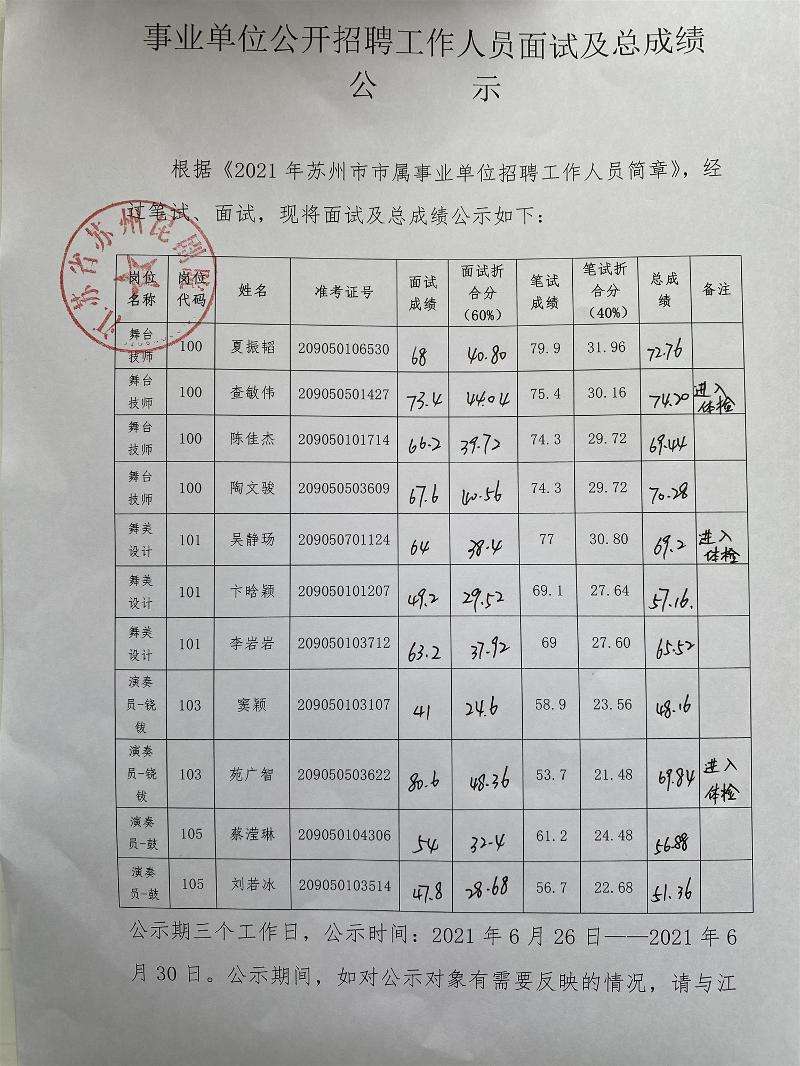 事业单位公开招聘工作人员面试及总成绩
公 示
根据《2021年苏州市市属事业单位招聘工作人员简章》，经
过笔试、面试，现将面试及总成绩公示如下：
江苏省苏州昆剧院
岗位名称 岗位代码 姓名 准考证号 面试成绩 面试折合分（60%） 笔试成绩 笔试折合分（40%） 总成绩 备注
舞台技师 100 夏振韬 209050106530 68 40.80 79.9 31.96 72.76
舞台技师 100 查敏伟 209050501427 73.4 44.04 75.4 30.16 74.20 进入体检
舞台技师 100 陈佳杰 209050101714 66.2 39.72 74.3 29.72 69.44
舞台技师 100 陶文骏 209050503609 67.6 40.56 74.3 29.72 70.28
舞美设计 101 吴静玚 209050701124 64 38.4 77 30.80 69.2 进入体检
舞美设计 101 卞晗颖 209050101207 49.2 29.52 69.1 27.64 57.16.
舞美设计 101 李岩岩 209050103712 63.2 37.92 69 27.60 65.52
演奏员-铙钹 103 窦颖 209050103107 41 24.6 58.9 23.56 48.16
演奏员-铙钹 103 苑广智 209050503622 80.6 48.36 53.7 21.48 69.84 进入体检
演奏员-鼓 105 蔡滢琳 209050104306 54 32.4 61.2 24.48 56.88
演奏员-鼓 105 刘若冰 209050103514 47.8 28.68 56.7 22.68 51.36
公示期三个工作日，公示时间：2021年6月26日——2021年6
月30日。公示期间，如对公示对象有需要反映的情况，请与江